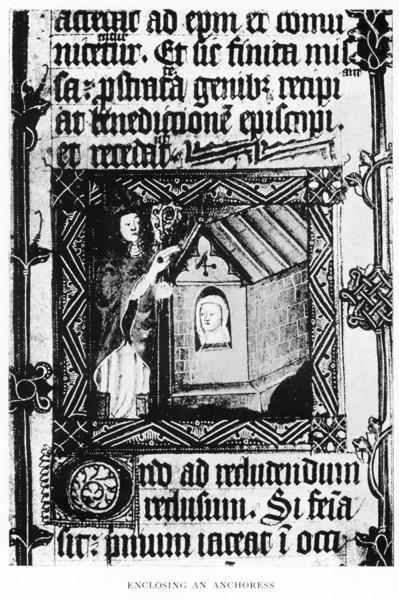 accedat ad epm et comu
nicetur. Et sic finita mis
sa: pstrata genibꝫ recipi
at benedictionē episcopi.
et recedat.
Ordo ad recludendum
reclusum. Si
sit: iaceat ī occi
ENCLOSING AN ANCHORESS